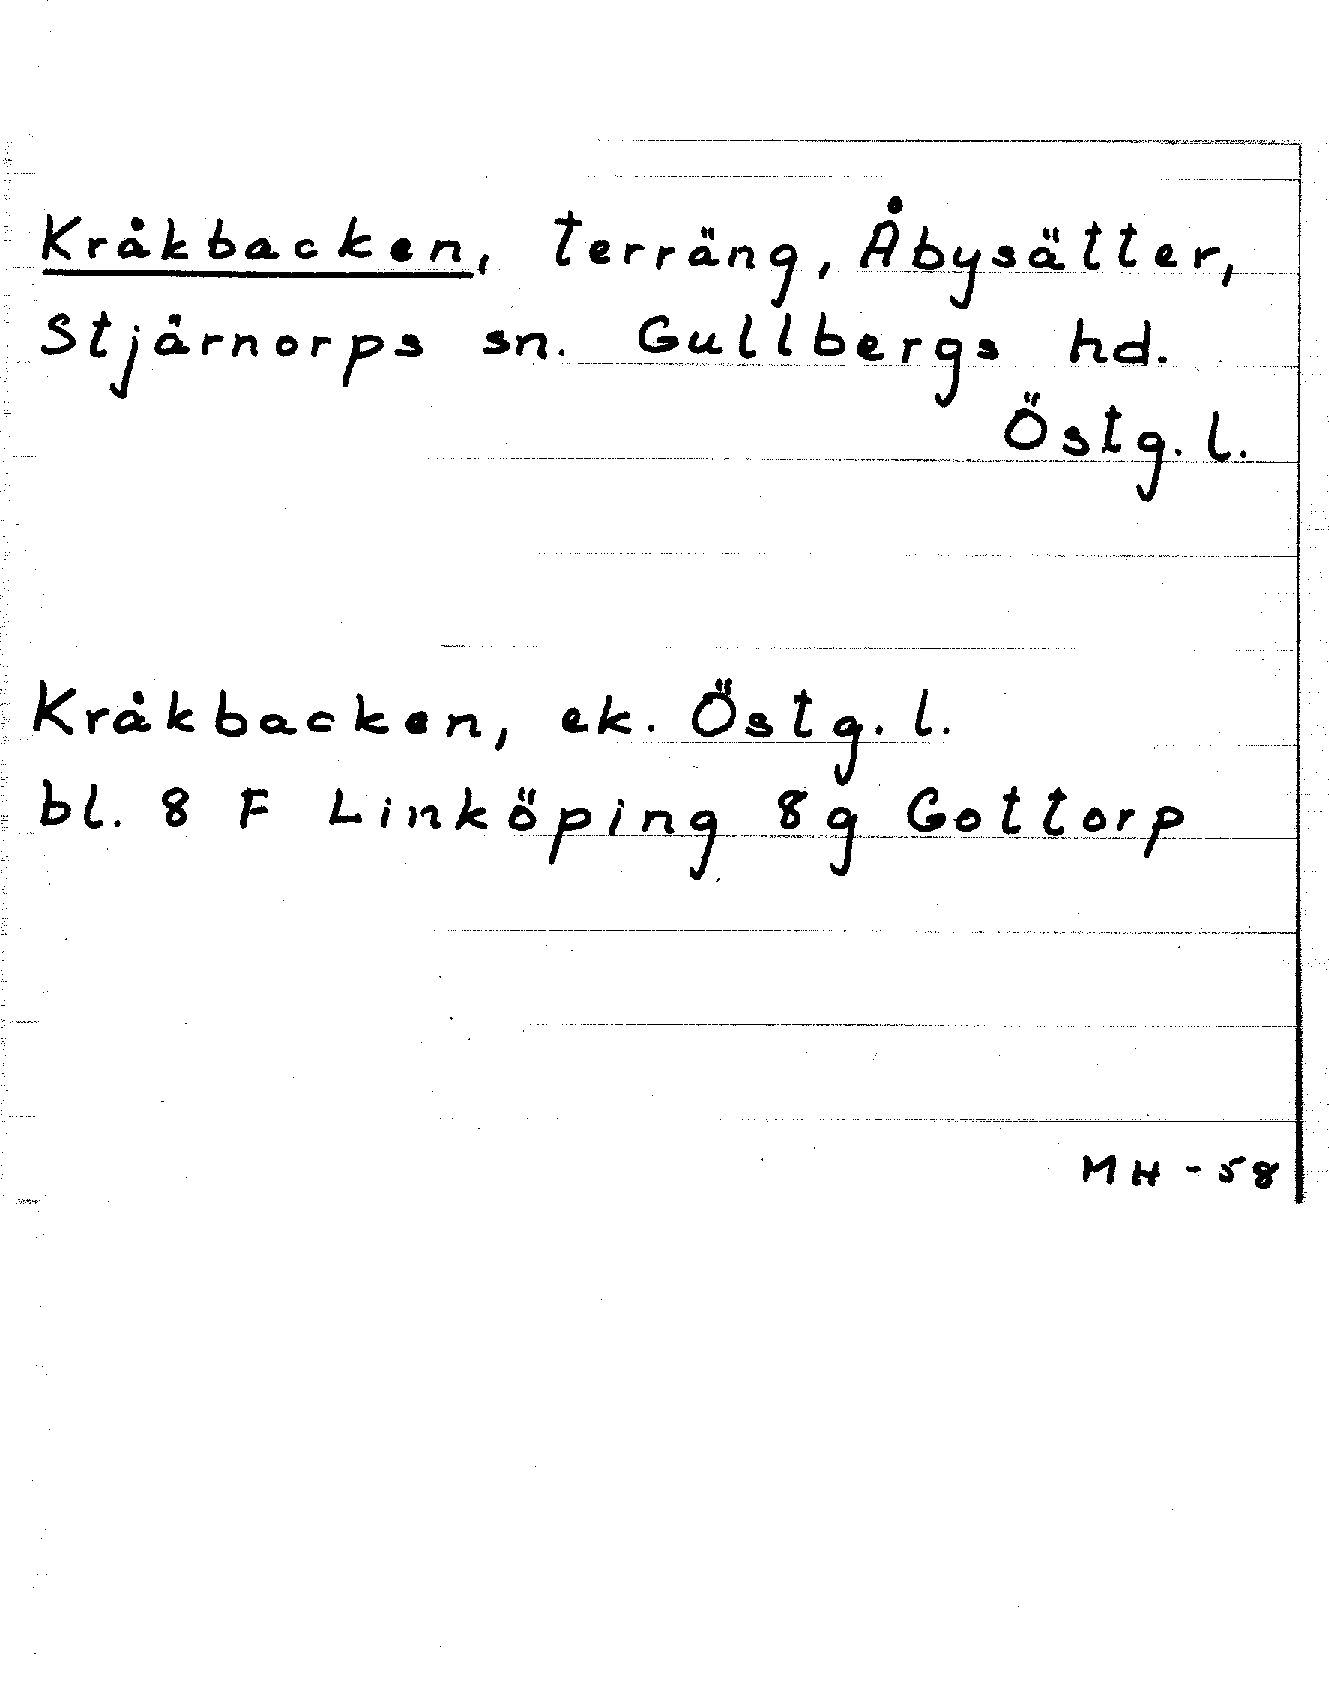 Kråkbacken, terräng, Åbysätter,
Stjärnorps sn. Gullbergs hd.
Östg. l.
Kråkbacken, ek. Östg. l.
bl. 8 F Linköping 8g Gottorp
MH - 58